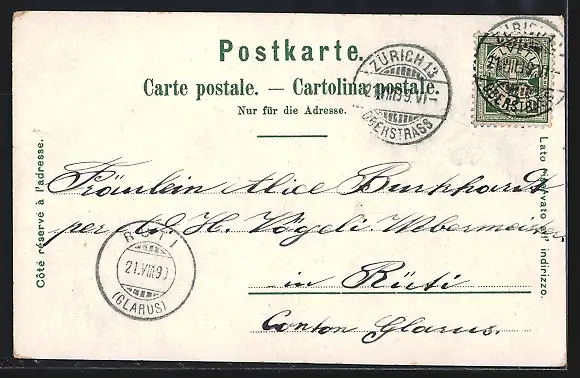 Postkarte.
Carte postale. — Cartolina postale.
Nur für die Adresse.
ZÜRICH 13
OBERSTRASS
Côté réservé à l'adresse.
Lato riservato all' indirizzo.
Fräulein Alice Burkhardt
per Ad. H. Vögeli Webermeister
in Rüti
Canton Glarus.
RÜTI
21.VIII.99
(GLARUS)